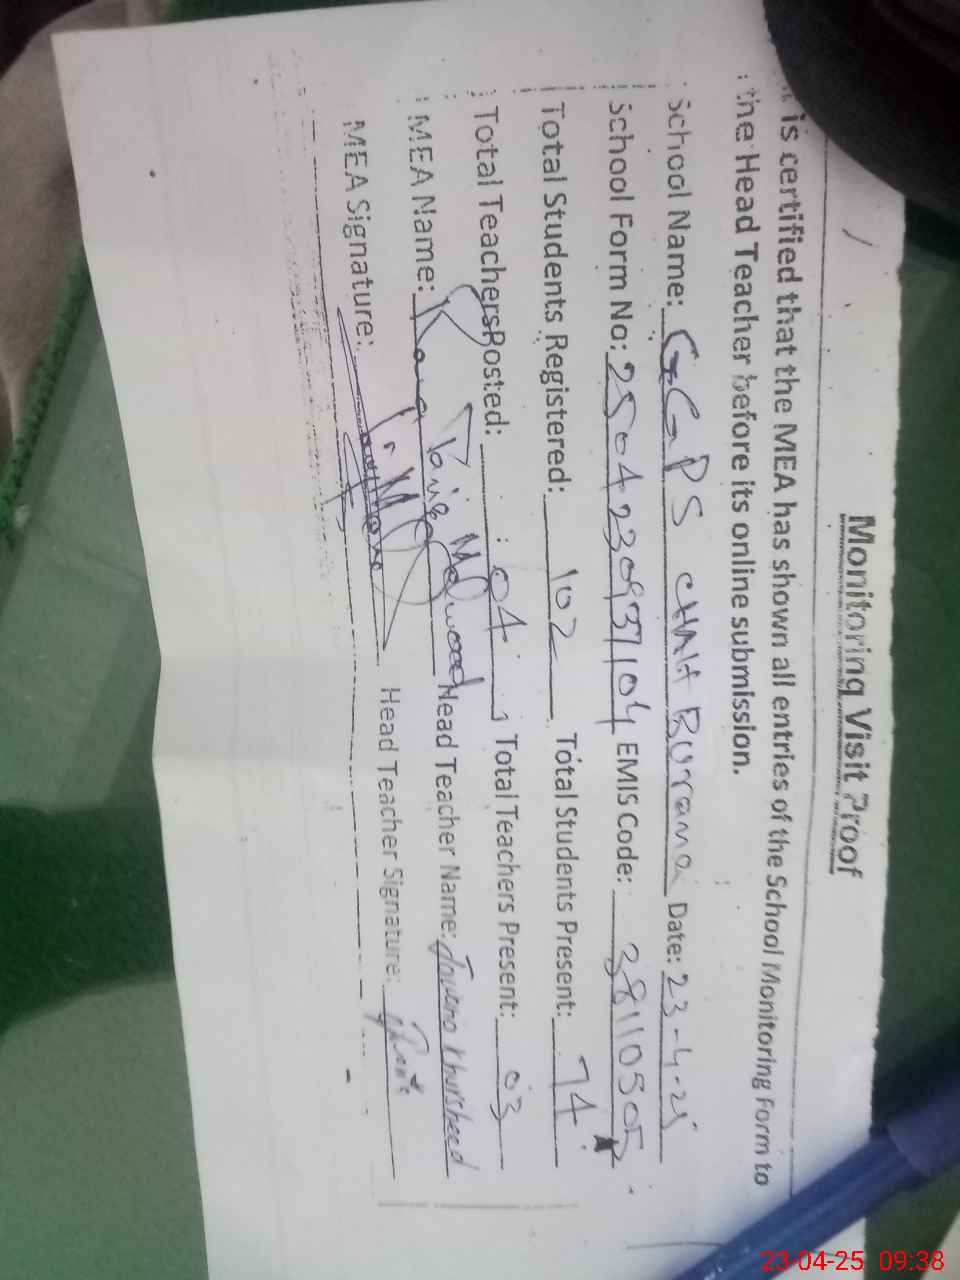 Monitoring Visit Proof
is certified that the MEA has shown all entries of the School Monitoring Form to
the Head Teacher before its online submission.
School Name: GGPS CHAH Burana Date: 23-4-25
School Form No: 2504230937104 EMIS Code: 38110505
Total Students Registered: 102 Total Students Present: 74
Total Teachers Posted: 04 Total Teachers Present: 03
MEA Name: Rana Head Teacher Name: Khursheed
MEA Signature: Head Teacher Signature:
23-04-25 09:38